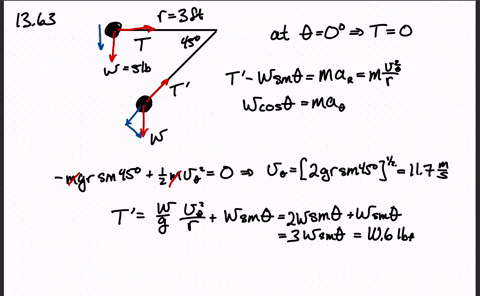 13.63
r=3ft
T
45°
W=5lb
T'
W
at θ=0° ⇒ T=0
T'-Wsmθ=ma_R=m v_θ²/r
Wcosθ=ma_θ
-mgr sm45°+½mv_θ²=0 ⇒ v_θ=[2gr sm45°]^½=11.7 m/s
T'= W/g v_θ²/r + Wsmθ=2Wsmθ+Wsmθ
=3Wsmθ=10.6 lb_f